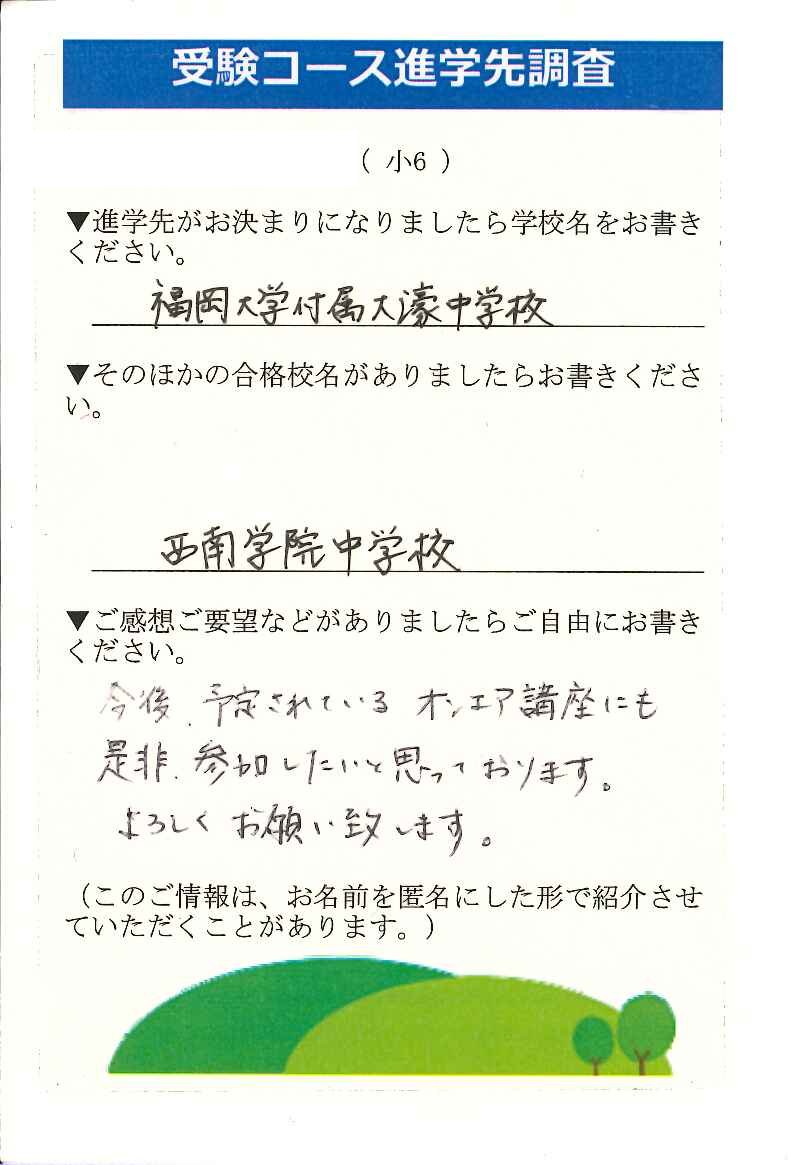 受験コース進学先調査
（ 小6 ）
▼進学先がお決まりになりましたら学校名をお書き
ください。
福岡大学付属大濠中学校
▼そのほかの合格校名がありましたらお書きくださ
い。
西南学院中学校
▼ご感想ご要望などがありましたらご自由にお書き
ください。
今後、予定されている オンエア講座にも
是非、参加したいと思っております。
よろしくお願い致します。
（このご情報は、お名前を匿名にした形で紹介させ
ていただくことがあります。）